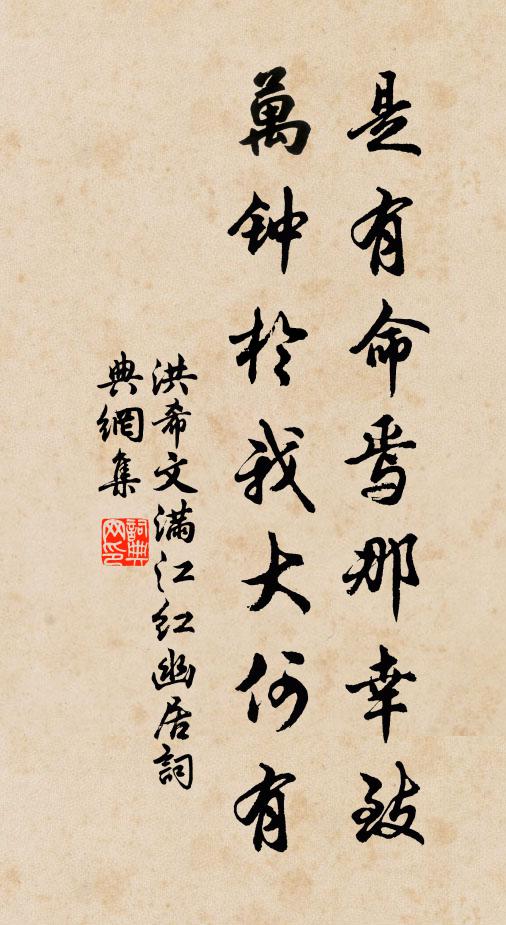 是有命焉那幸致
萬钟於我大何有
洪希文滿江红幽居詞
典網集
詞典网印